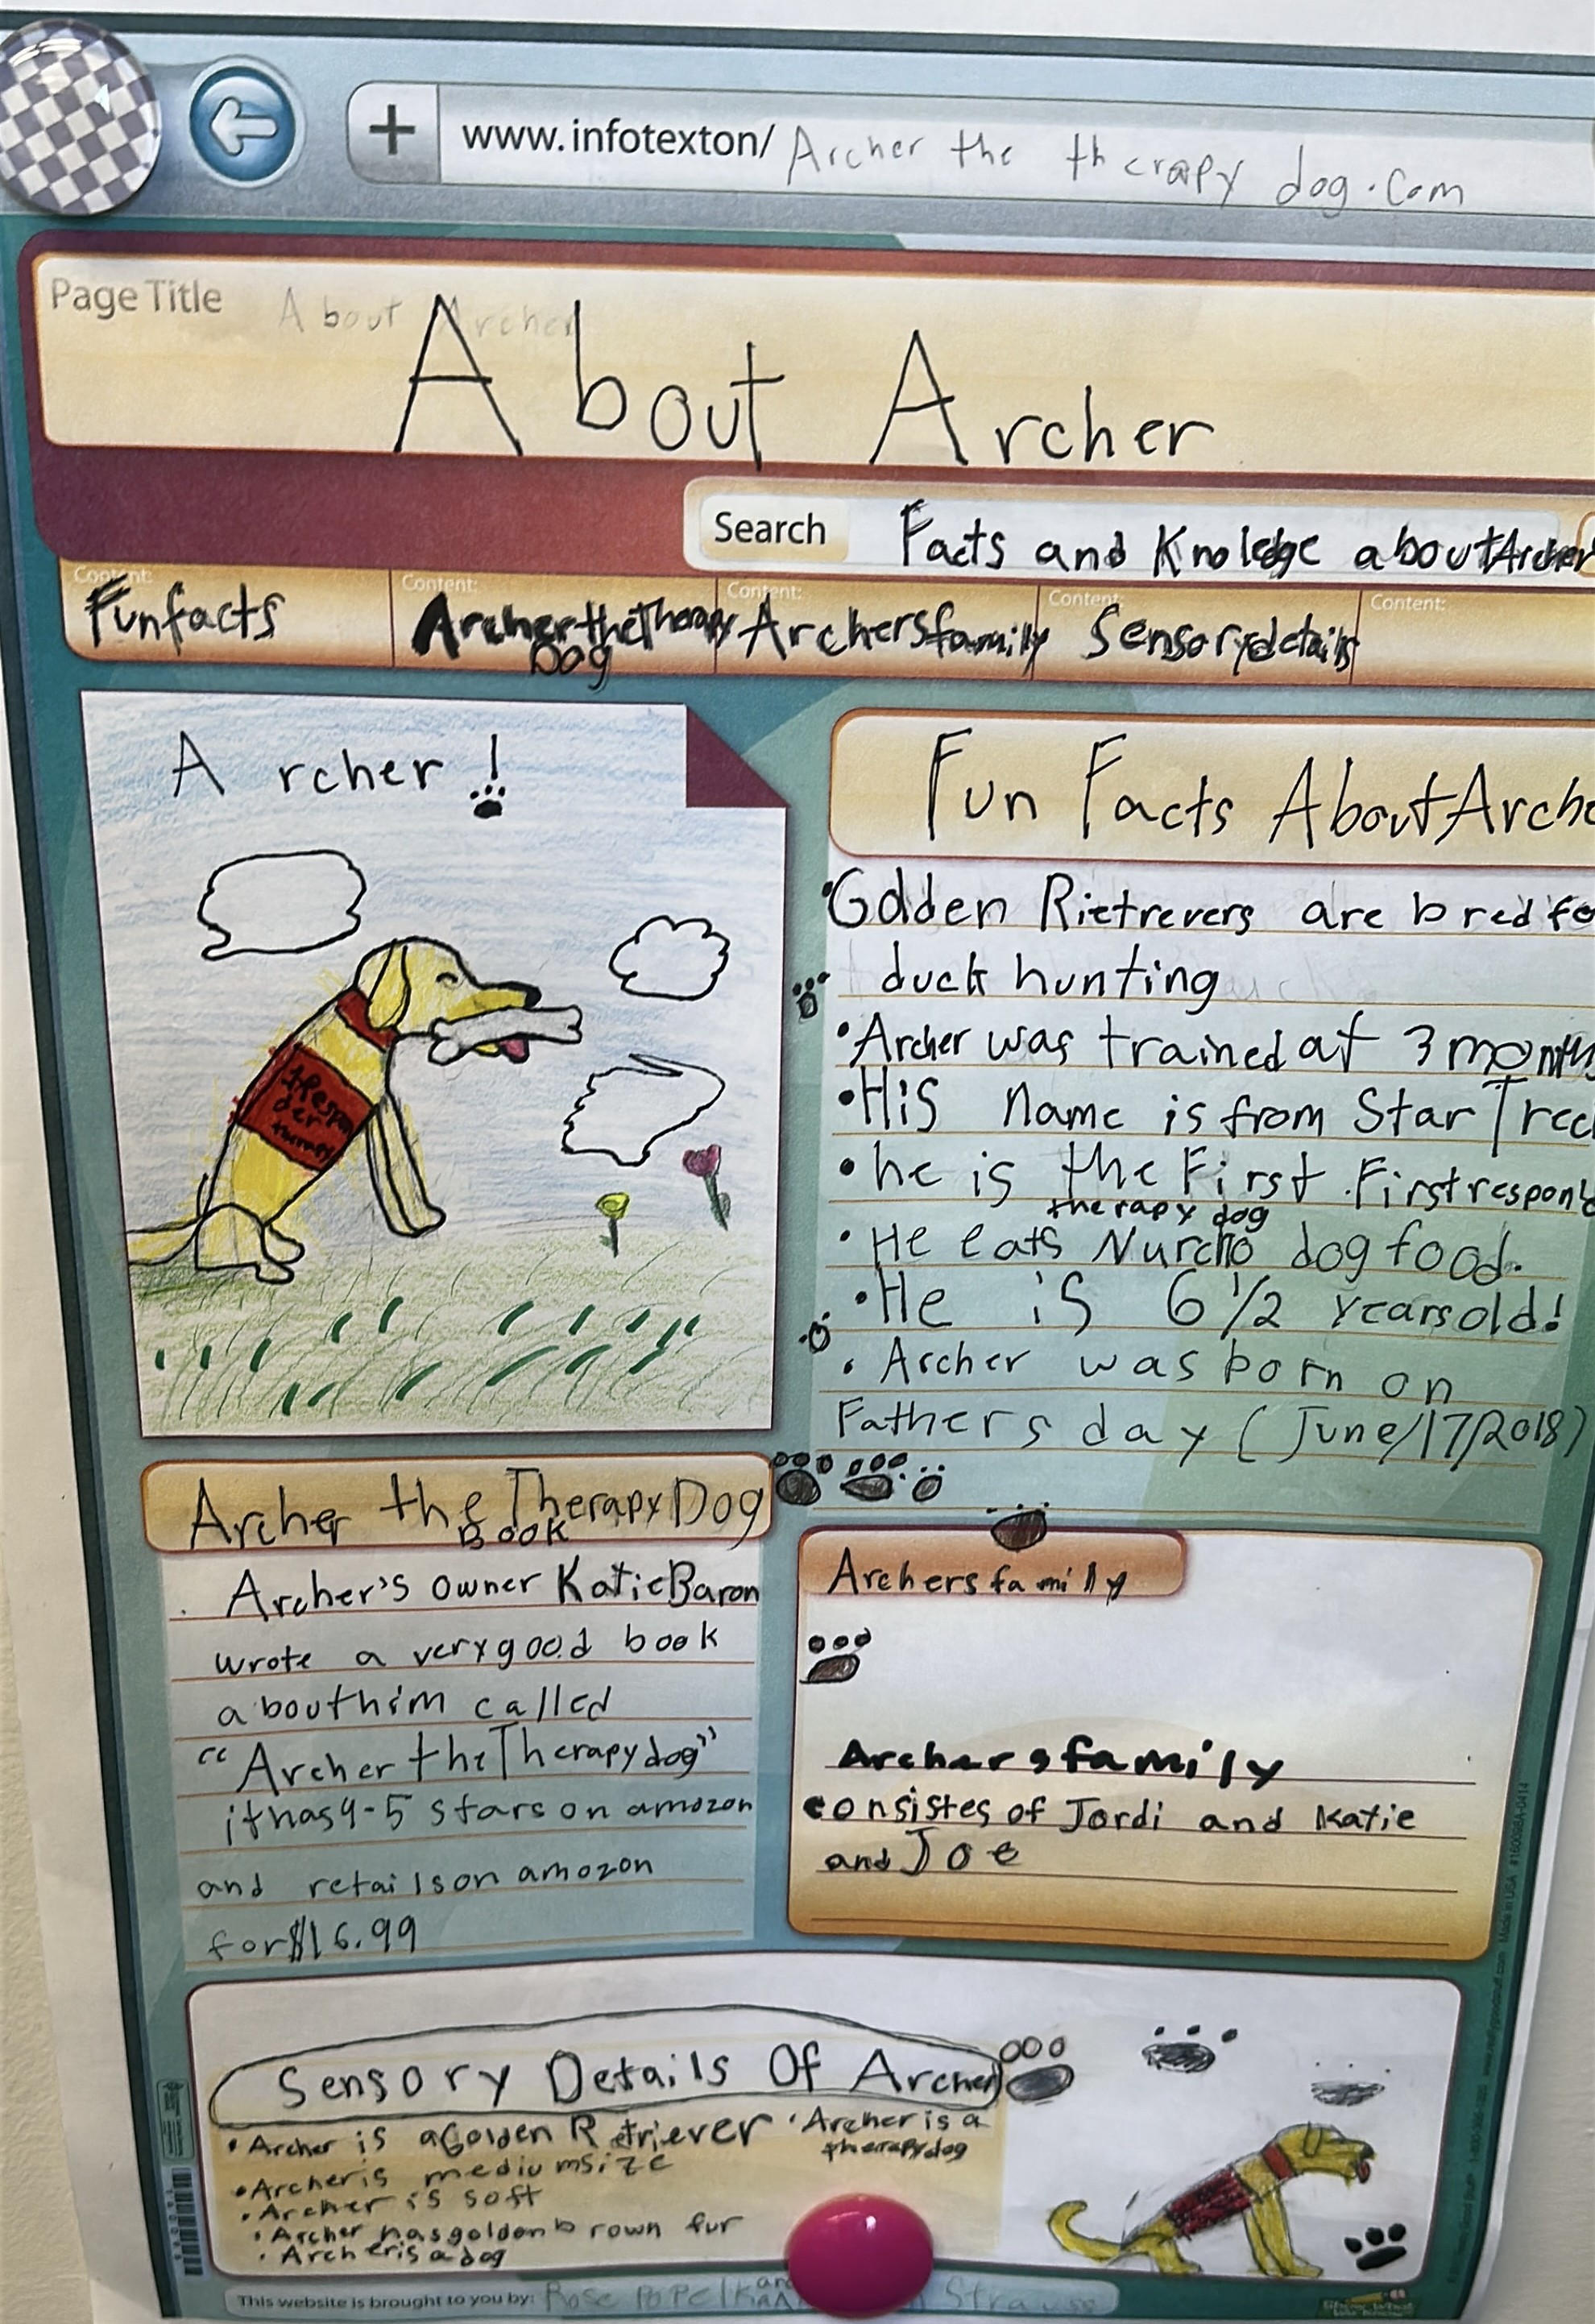 www.infotexton/ Archer the therapy dog.com
Page Title About Archer
About Archer
Search Facts and Knoledge about Archer
Content: Content: Content: Content: Content:
Funfacts Archer the Therapy Dog Archers family Sensory details
Archer!
Respon
der
therapy
Fun Facts About Arche
• Golden Rietrevers are bred fo
duck hunting
• Archer was trained at 3 months
• His name is from Star Trec
• he is the First First respond
therapy dog
• He eats Nurcho dog food.
• He is 6 1/2 years old!
• Archer was born on
Fathers day (June/17/2018)
Archer the Therapy Dog
Book
Archer's owner Katie Baron
wrote a very good book
about him called
"Archer the Therapy dog"
it has 4-5 stars on amozon
and retails on amozon
for $16.99
Archers family
Archers family
consistes of Jordi and Katie
and Joe
Sensory Details Of Archer
• Archer is a Golden Retriever
• Archer is medium size
• Archer is soft
• Archer has golden brown fur
• Archer is a dog
• Archer is a
therapy dog
This website is brought to you by: Rose and
#160098A-0414 Made in USA